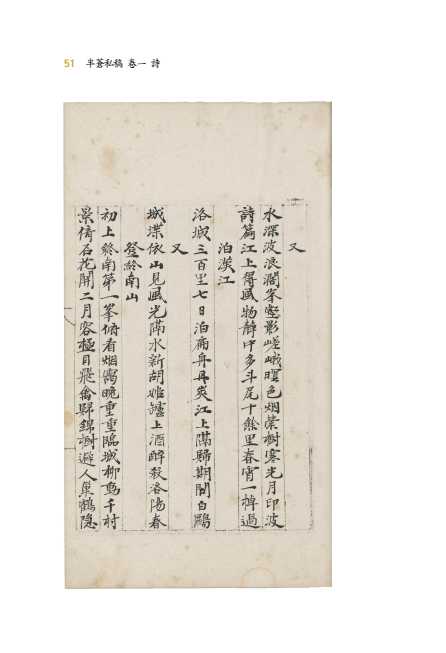 51 半蒼私稿 卷一 詩
又
水深波浪濶峯壑影嵯峨暝色烟樹寒光月印波
詩篇江上得風物靜中多斗尾十餘里春宵一棹過
泊漢江
洛城三百里七日泊扁舟江上歸期問白鷗
又
城堞依山見風光滿水新胡姬壚上酒醉殺洛陽春
登終南山
初上終南第一峯俯看烟靄晩重重臨城柳千村
景倚石花開二月容極目飛禽歸錦樹避人巢鶴隱